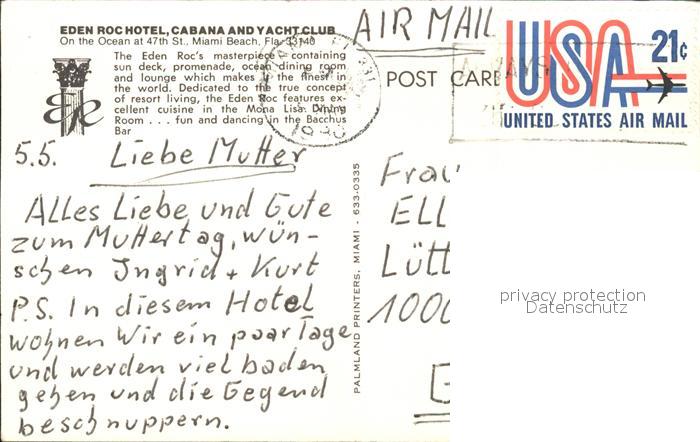 EDEN ROC HOTEL, CABANA AND YACHT CLUB
On the Ocean at 47th St., Miami Beach, Fla. 33140
The Eden Roc's masterpiece containing
sun deck, promenade, ocean dining room
and lounge which makes it the finest in
the world. Dedicated to the true concept
of resort living, the Eden Roc features ex-
cellent cuisine in the Mona Lisa Dining
Room . . . fun and dancing in the Bacchus
Bar
AIR MAIL
POST CARD
USA 21¢
UNITED STATES AIR MAIL
5.5. Liebe Mutter
Alles Liebe und Gute
zum Muttertag, wün-
schen Ingrid + Kurt
P.S. In diesem Hotel
wohnen Wir ein paar Tage
und werden viel baden
gehen und die Gegend
beschnuppern.
PALMLAND PRINTERS, MIAMI - 633-0335
Frau
ELL
Lütt
1000
privacy protection
Datenschutz